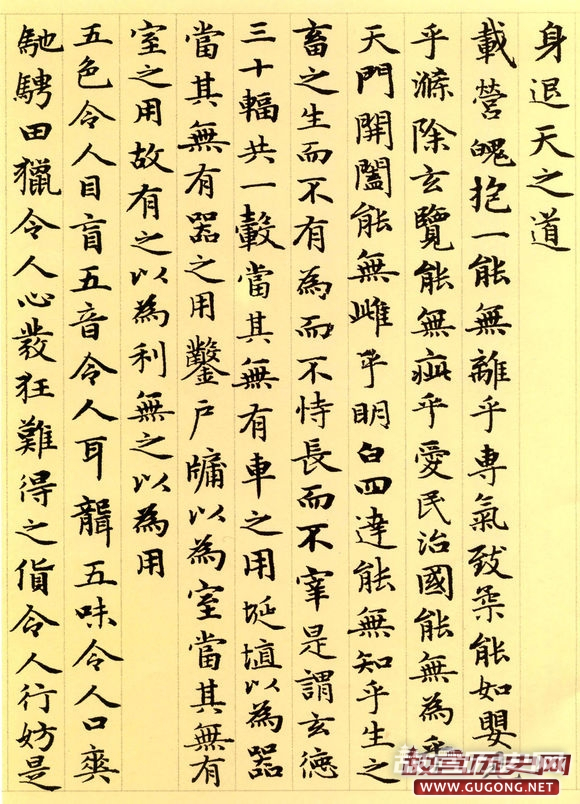 身退天之道
載營魄抱一能無離乎專氣致柔能如嬰
乎滌除玄覽能無疵乎愛民治國能無為乎
天門開闔能無雌乎明白四達能無知乎生之
畜之生而不有為而不恃長而不宰是謂玄德
三十輻共一轂當其無有車之用埏埴以為器
當其無有器之用鑿戶牖以為室當其無有
室之用故有之以為利無之以為用
五色令人目盲五音令人耳聾五味令人口爽
馳騁田獵令人心發狂難得之貨令人行妨是
故宫历史网
WWW.GUGONG.NET